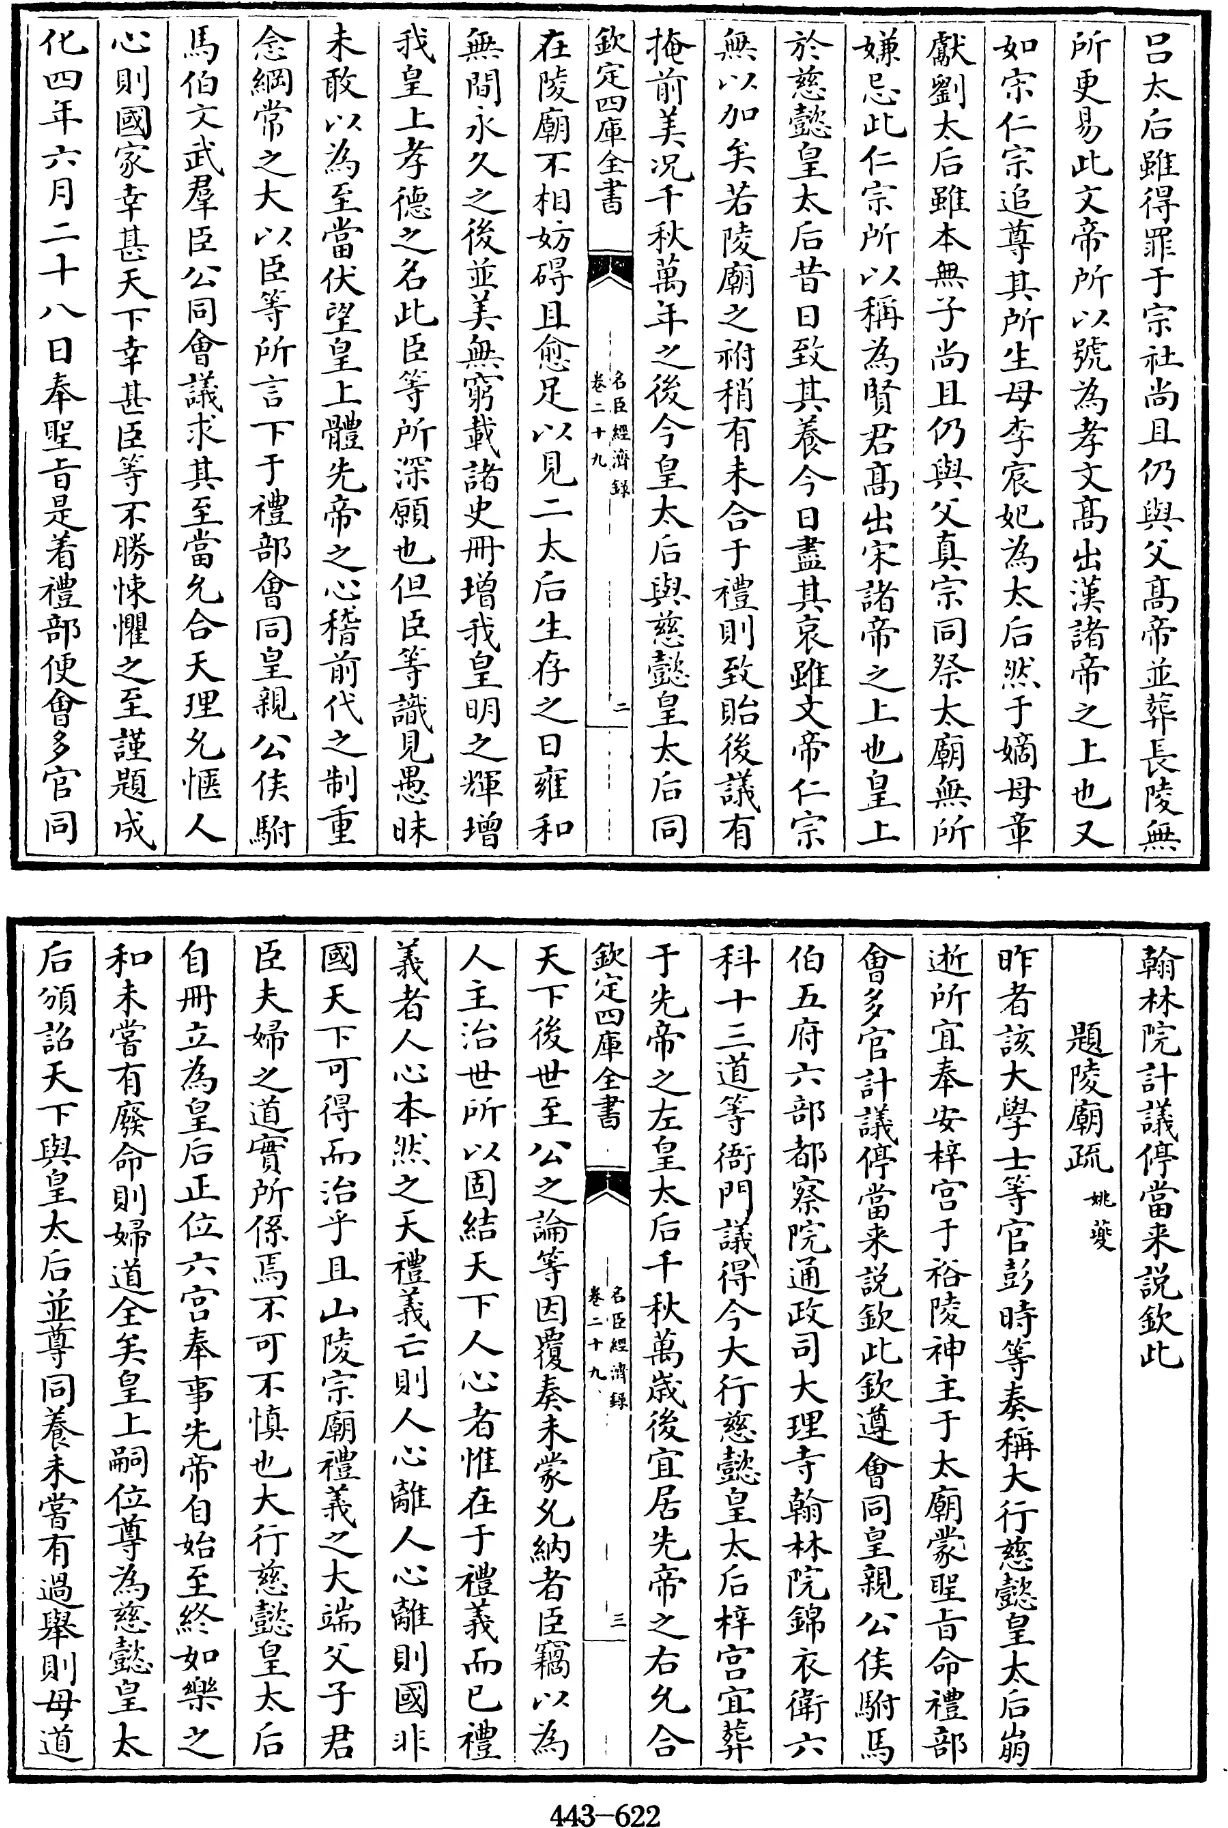 呂太后雖得罪于宗社尚且仍與父髙帝並葬長陵無
所更易此文帝所以號為孝文髙出漢諸帝之上也又
如宋仁宗追尊其所生母李宸妃為太后然于嫡母章
獻劉太后雖本無子尚且仍與父真宗同祭太廟無所
嫌忌此仁宗所以稱為賢君髙出宋諸帝之上也皇上
於慈懿皇太后昔日致其養今日盡其哀雖文帝仁宗
無以加矣若陵廟之祔稍有未合于禮則致貽後議有
掩前美况千秋萬年之後今皇太后與慈懿皇太后同
欽定四庫全書
名臣經濟録
卷二十九
二
在陵廟不相妨碍且愈足以見二太后生存之日雍和
無間永久之後並美無窮載諸史冊增我皇明之輝增
我皇上孝德之名此臣等所深願也但臣等識見愚昧
未敢以為至當伏望皇上體先帝之心稽前代之制重
念綱常之大以臣等所言下于禮部會同皇親公侯駙
馬伯文武羣臣公同會議求其至當允合天理允愜人
心則國家幸甚天下幸甚臣等不勝悚懼之至謹題成
化四年六月二十八日奉聖旨是着禮部便會多官同
翰林院計議停當来説欽此
題陵廟疏
姚夔
昨者該大學士等官彭時等奏稱大行慈懿皇太后崩
逝所宜奉安梓宫于裕陵神主于太廟蒙聖旨命禮部
會多官計議停當来説欽此欽遵會同皇親公侯駙馬
伯五府六部都察院通政司大理寺翰林院錦衣衛六
科十三道等衙門議得今大行慈懿皇太后梓宫宜葬
于先帝之左皇太后千秋萬歲後宜居先帝之右允合
欽定四庫全書
名臣經濟録
卷二十九
三
天下後世至公之論等因覆奏未蒙允納者臣竊以為
人主治世所以固結天下人心者惟在于禮義而已禮
義者人心本然之天禮義亡則人心離人心離則國非
國天下可得而治乎且山陵宗廟禮義之大端父子君
臣夫婦之道實所係焉不可不慎也大行慈懿皇太后
自冊立為皇后正位六宫奉事先帝自始至終如樂之
和未嘗有廢命則婦道全矣皇上嗣位尊為慈懿皇太
后頒詔天下與皇太后並尊同養未嘗有過舉則母道
443-622